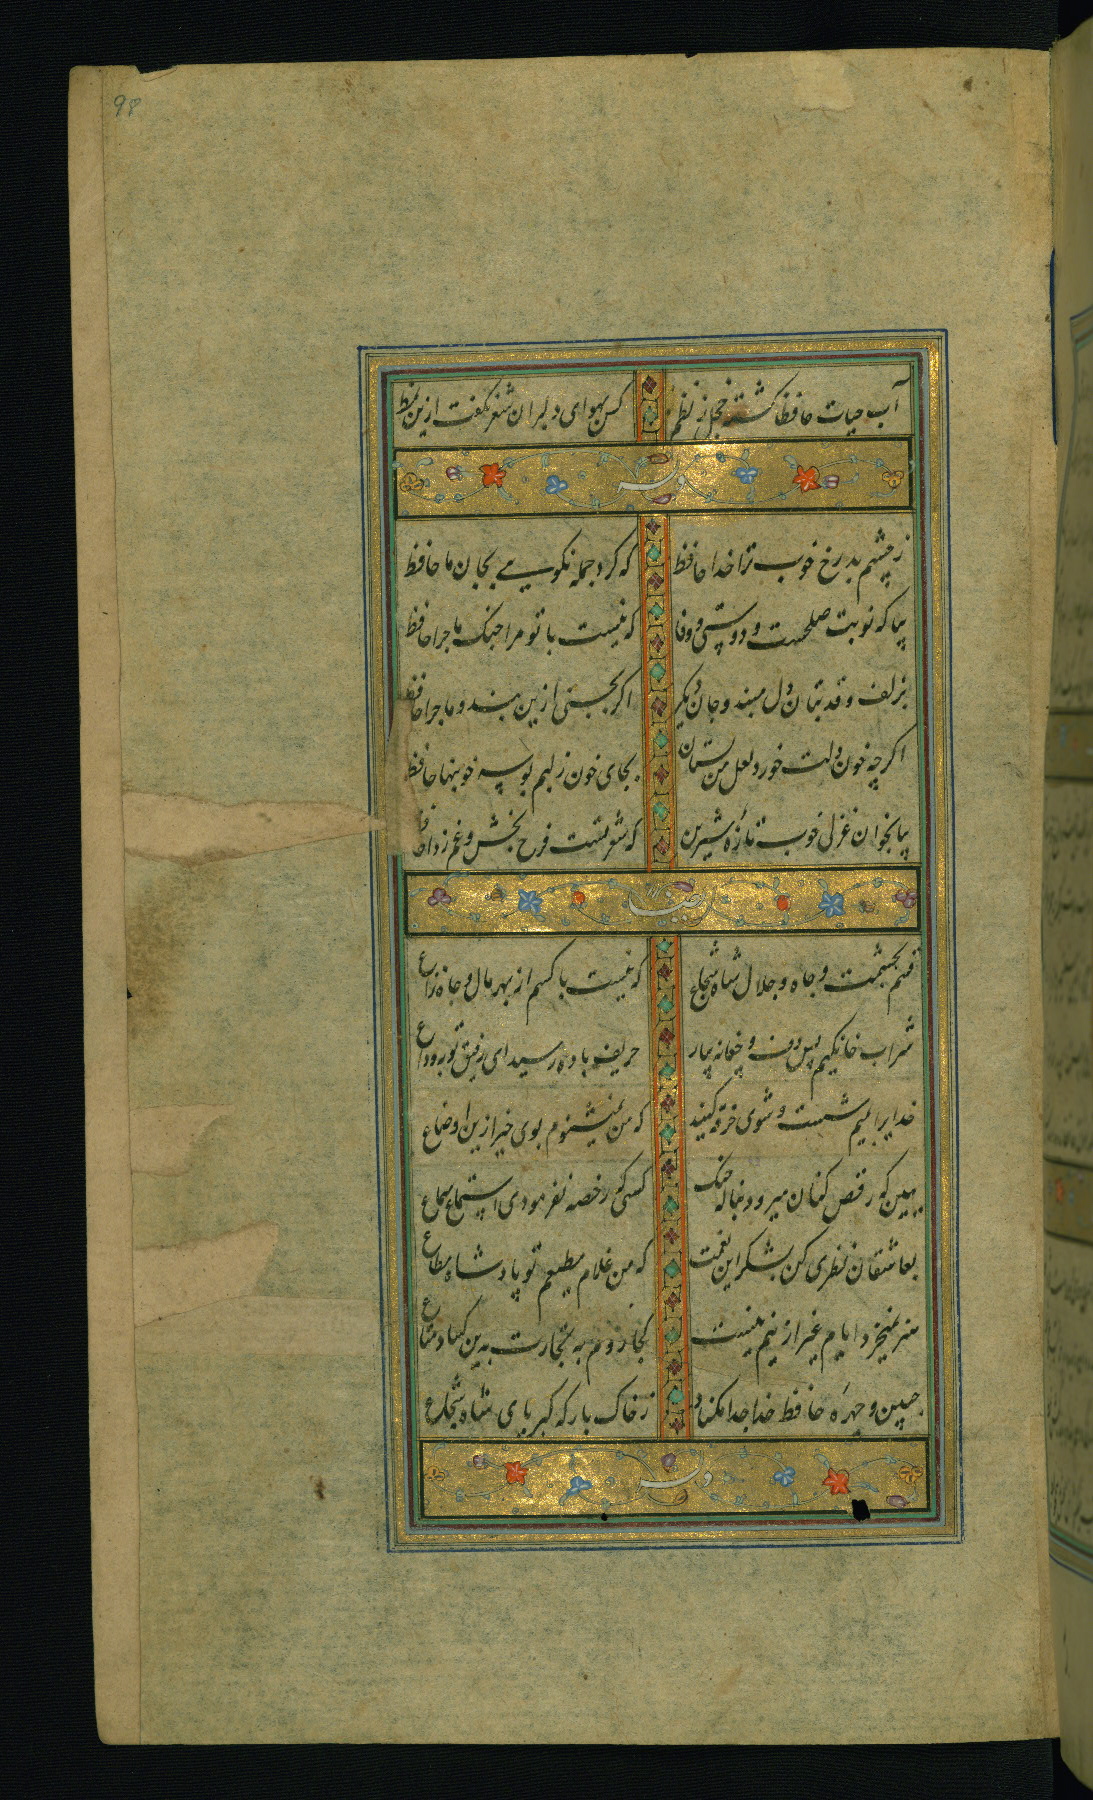 98
آب حیات حافظا گشته خجل ز نظم تو کس بهوای دلبران شعر نگفت ازین نمط
وله
ز چشم بد رخ خوب ترا خدا حافظ که کرد جمله نکویی بجان ما حافظ
بیا که نوبت صلحست و دوستی و وفا که نیست با تو مرا جنک و ماجرا حافظ
بزلف و قد بتان دل مبند و جان دیکر اگر بجستی ازین بند و ماجرا حافظ
اگرچه خون دلت خورد لعل من بستان بجای خون ز لبم بوسه خونبها حافظ
بیا بخوان غزلی خوب و تازه شیرین که شعر تست فرح بخش و غم زدا حافظ
قسم بحشمت و جاه و جلال شاه شجاع که نیست با کسم از بهر مال و جاه نزاع
شراب خانگیم بس دف و چغانه بیار حریف باده رسید ای رفیق توبه وداع
خدایرا بمیم شست و شوی خرقه کنید که من نمیشنوم بوی خیر ازین اوضاع
ببین که رقص کنان میرود بناله چنک کسی که رخصه نفرمودی استماع سماع
بعاشقان نظری کن بشکر این نعمت که من غلام مطیعم تو پادشاه مطاع
هنر نمیخرد ایام غیر ازینم نیست کجا روم به تجارت بدین کساد متاع
جبین و چهره حافظ خدا جدا مکناد ز خاک بارگه کبریای شاه شجاع
وله